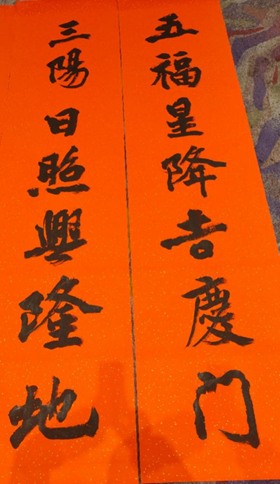 五福星降吉慶门
三陽日照興隆地